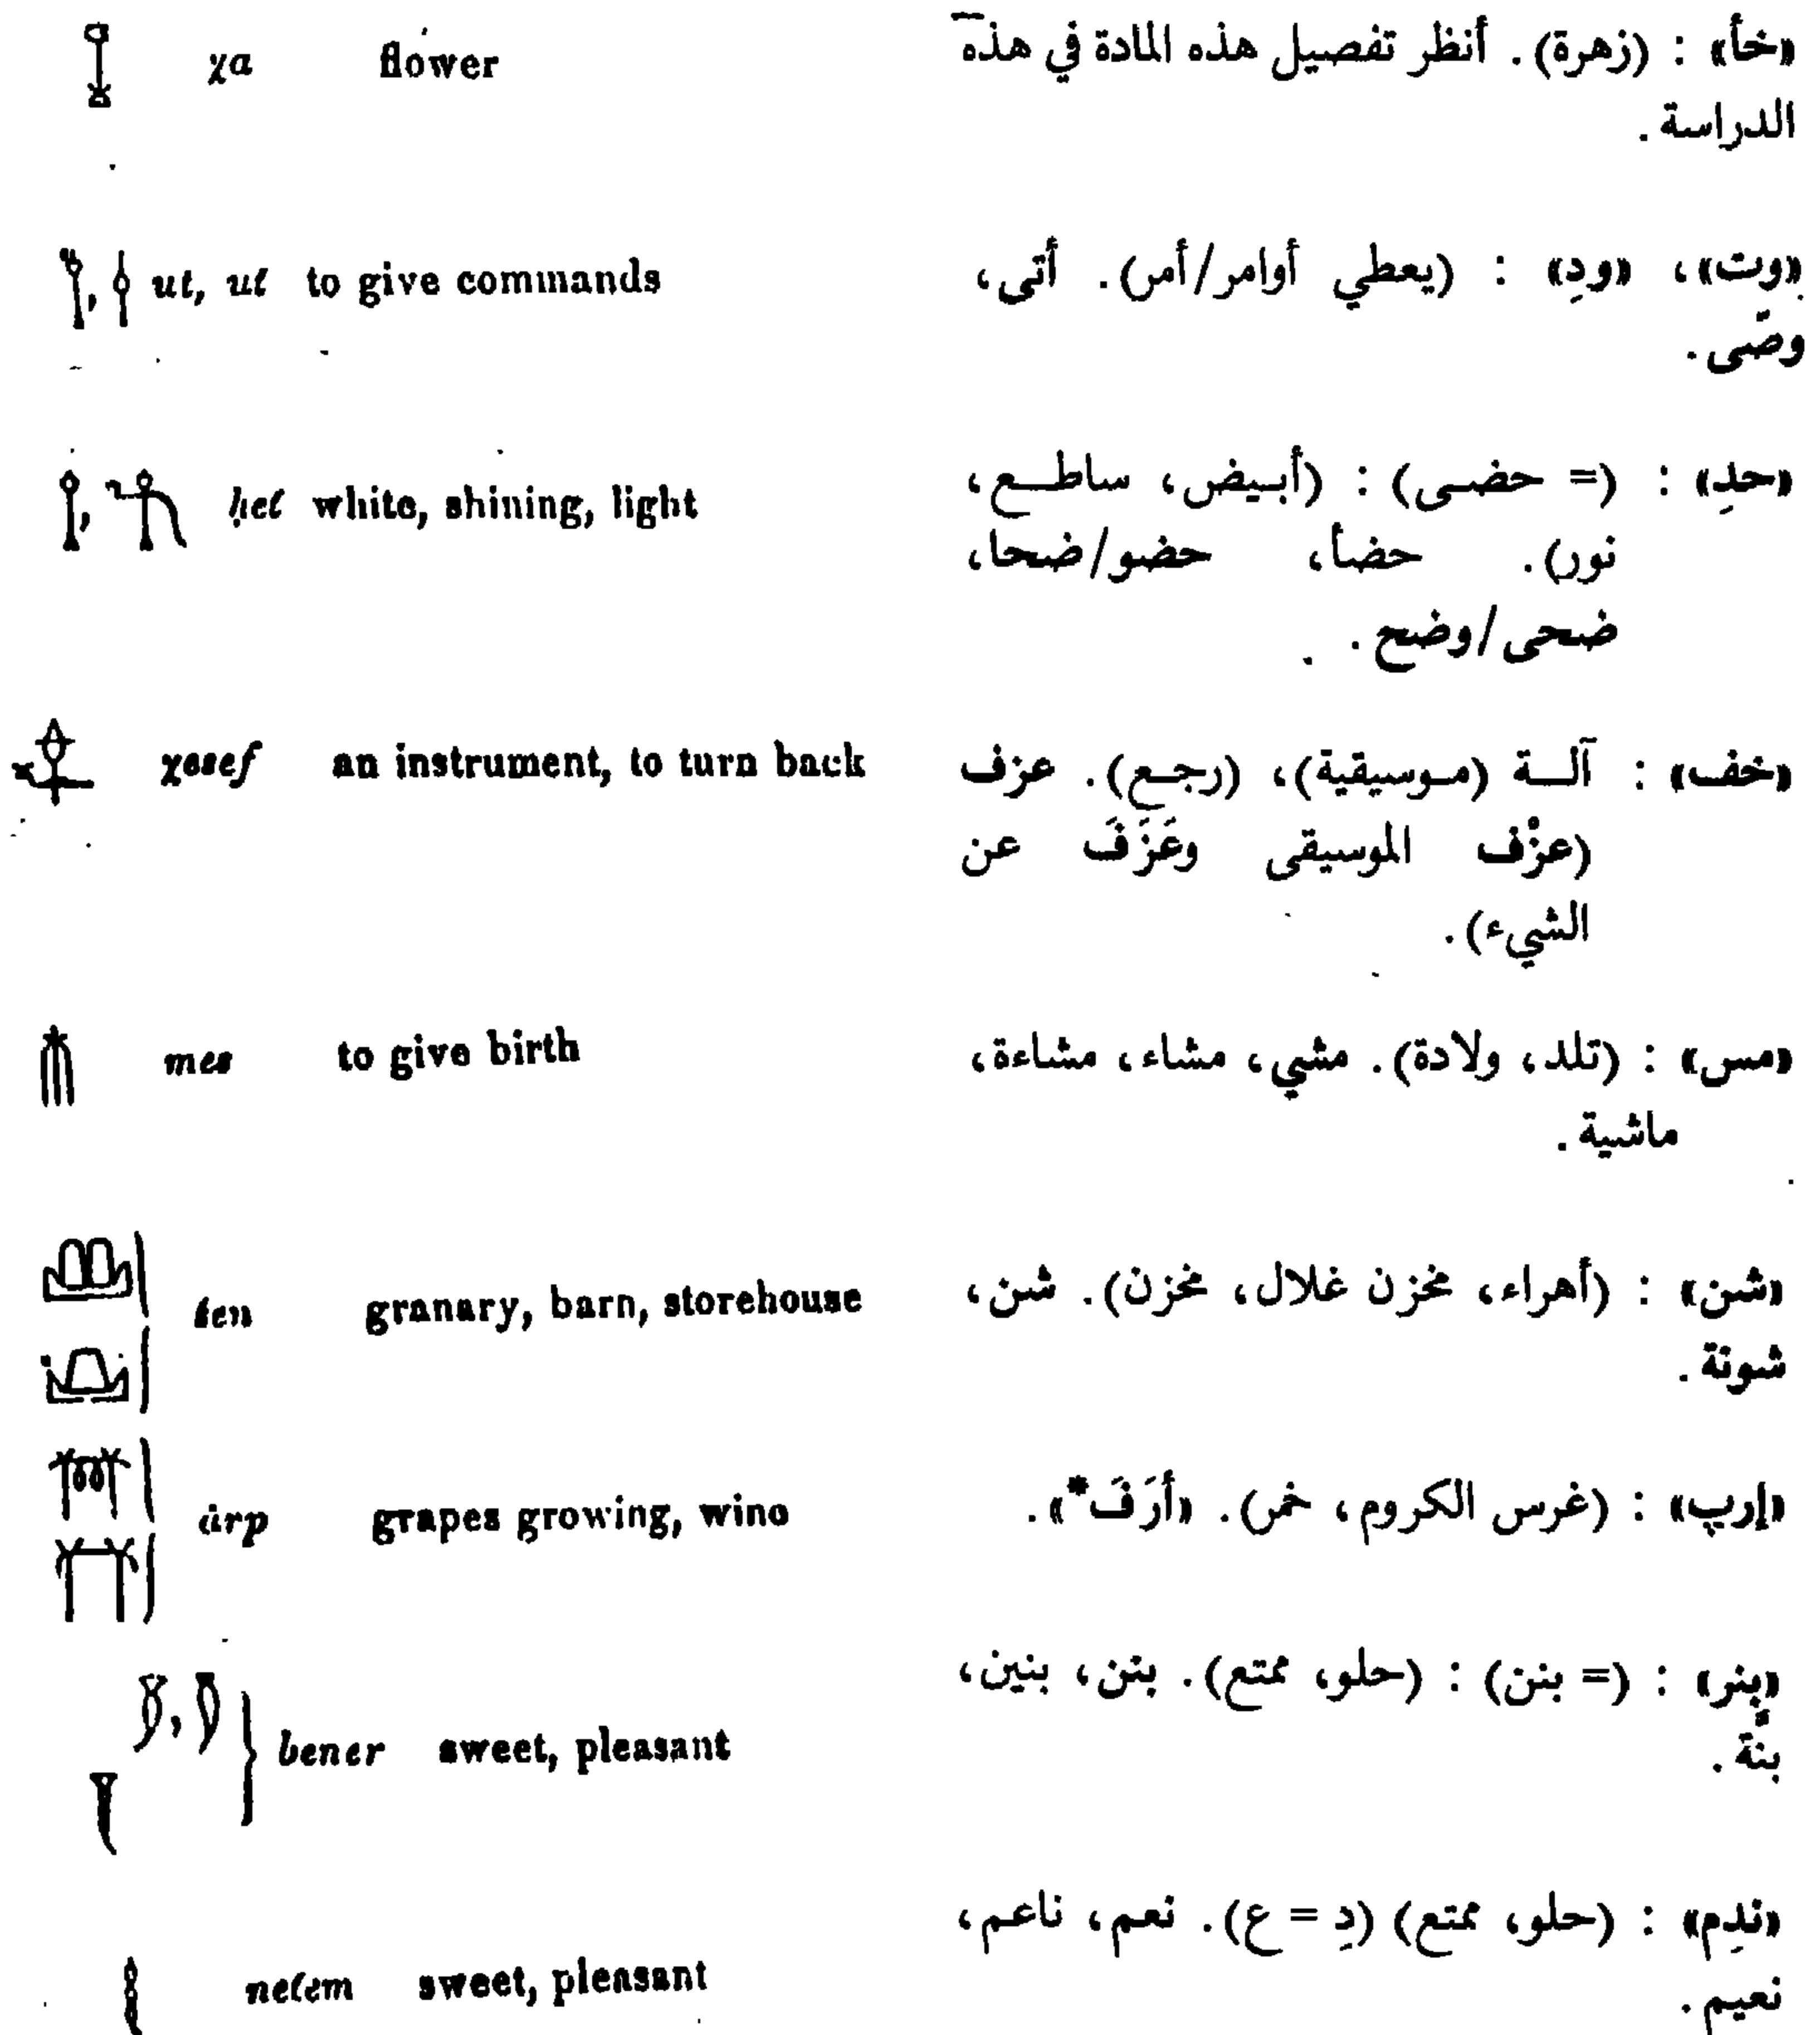 χa flower «خأ» : (زهرة). أنظر تفصيل هذه المادة في هذه
الدراسة.
ut, ut' to give commands «وت»، «ودِ» : (يعطي أوامر/أمر). أتى،
وصّى.
ḥet' white, shining, light «حدِ» : (= حضى) : (أبيض، ساطع،
نور). حضأ، حضو/ضحا،
ضحى/وضح.
χesef an instrument, to turn back «خف» : آلة (موسيقية)، (رجع). عزف
(عزْف الموسيقى وعَزَفَ عن
الشيء).
mes to give birth «مس» : (تلد، ولادة). مشي، مشاء، مشاءة،
ماشية.
šen granary, barn, storehouse «شن» : (أهراء، مخزن غلال، مخزن). شن،
شونة.
ȧrp grapes growing, wine «إرپ» : (غرس الكروم، خمر). «أرَفَ*».
bener sweet, pleasant «بنر» : (= بنن) : (حلو، ممتع). بنن، بنين،
بنّة.
net'em sweet, pleasant «ندِم» : (حلو، ممتع) (دِ = ع). نعم، ناعم،
نعيم.